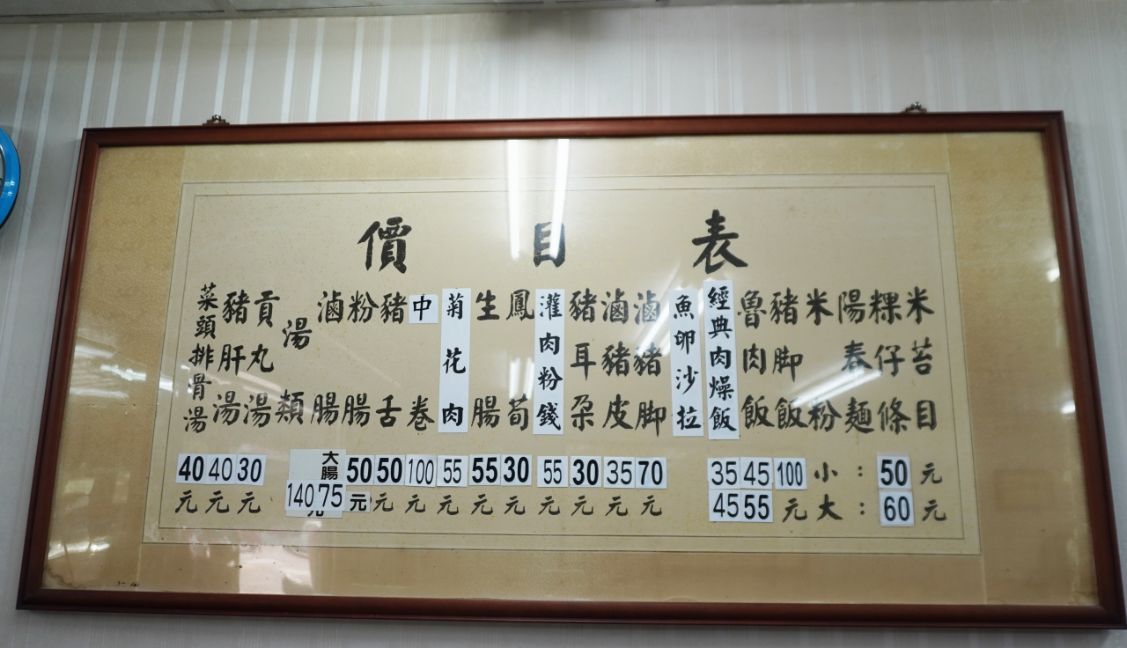 價目表
米苔目
粿仔條
陽春麵
米粉
小：50元
大：60元
豬脚飯
100元
魯肉飯
45
55
經典肉燥飯
35
45
魚卵沙拉
滷豬脚
70元
滷豬皮
35元
豬耳朶
30元
灌肉粉錢
55元
鳳荀
30元
生腸
55元
菊花肉
55元
中卷
100元
豬舌
50元
粉腸
50元
滷腸
大腸
75
140
湯類
貢丸湯
30元
豬肝湯
40元
菜頭排骨湯
40元